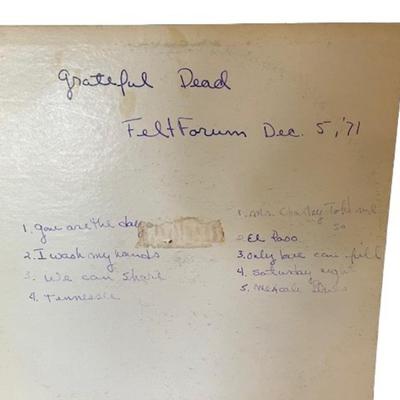 Grateful Dead
Felt Forum Dec. 5, '71
1. You are the day
2. I wash my hands
3. We can share
4. Tennessee
1. Mr. Charley Told me so
2. El Paso
3. only love can fill
4. Saturday night
5. Mexcale Blues